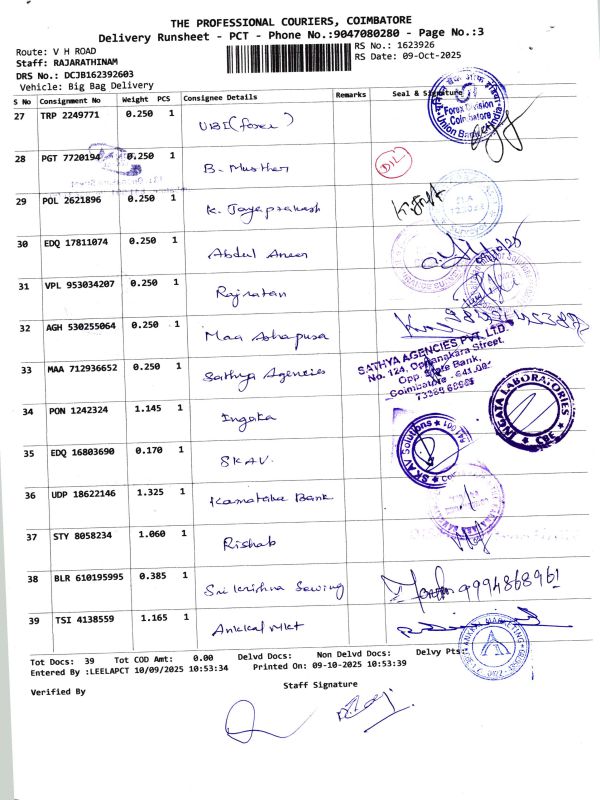 THE PROFESSIONAL COURIERS, COIMBATORE
Delivery Runsheet - PCT - Phone No.:9047080280 - Page No.:3
Route: V H ROAD
RS No.: 1623926
Staff: RAJARATHINAM
RS Date: 09-Oct-2025
DRS No.: DCJB162392603
Vehicle: Big Bag Delivery
S No Consignment No Weight PCS Consignee Details Remarks Seal & Signature
27 TRP 2249771 0.250 1 UBI (forex)
Forex Division Coimbatore Union Bank
28 PGT 7720194 0.250 1 B. Musthar
DIL
29 POL 2621896 0.250 1 K. Jayaprakash
30 EDQ 17811074 0.250 1 Abdul Aneer
31 VPL 953034207 0.250 1 Rajratan
32 AGH 530255064 0.250 1 Maa Ashapura
33 MAA 712936652 0.250 1 Sathya Agencies
SATHYA AGENCIES PVT. LTD
No. 124, Oppanakara Street,
Opp. State Bank,
Coimbatore - 641 001
34 PON 1242324 1.145 1 Ingata
INGATA LABORATORIES CBE
35 EDQ 16803690 0.170 1 SKAV
SKAV Solutions
36 UDP 18622146 1.325 1 Karnataka Bank
37 STY 8058234 1.060 1 Rishab
38 BLR 610195995 0.385 1 Sri krishna Sewing
9994868961
39 TSI 4138559 1.165 1 Ankkal Mkt
MARKETING
Tot Docs: 39 Tot COD Amt: 0.00 Delvd Docs: Non Delvd Docs: Delvy Pts:
Entered By :LEELAPCT 10/09/2025 10:53:34 Printed On: 09-10-2025 10:53:39
Staff Signature
Verified By